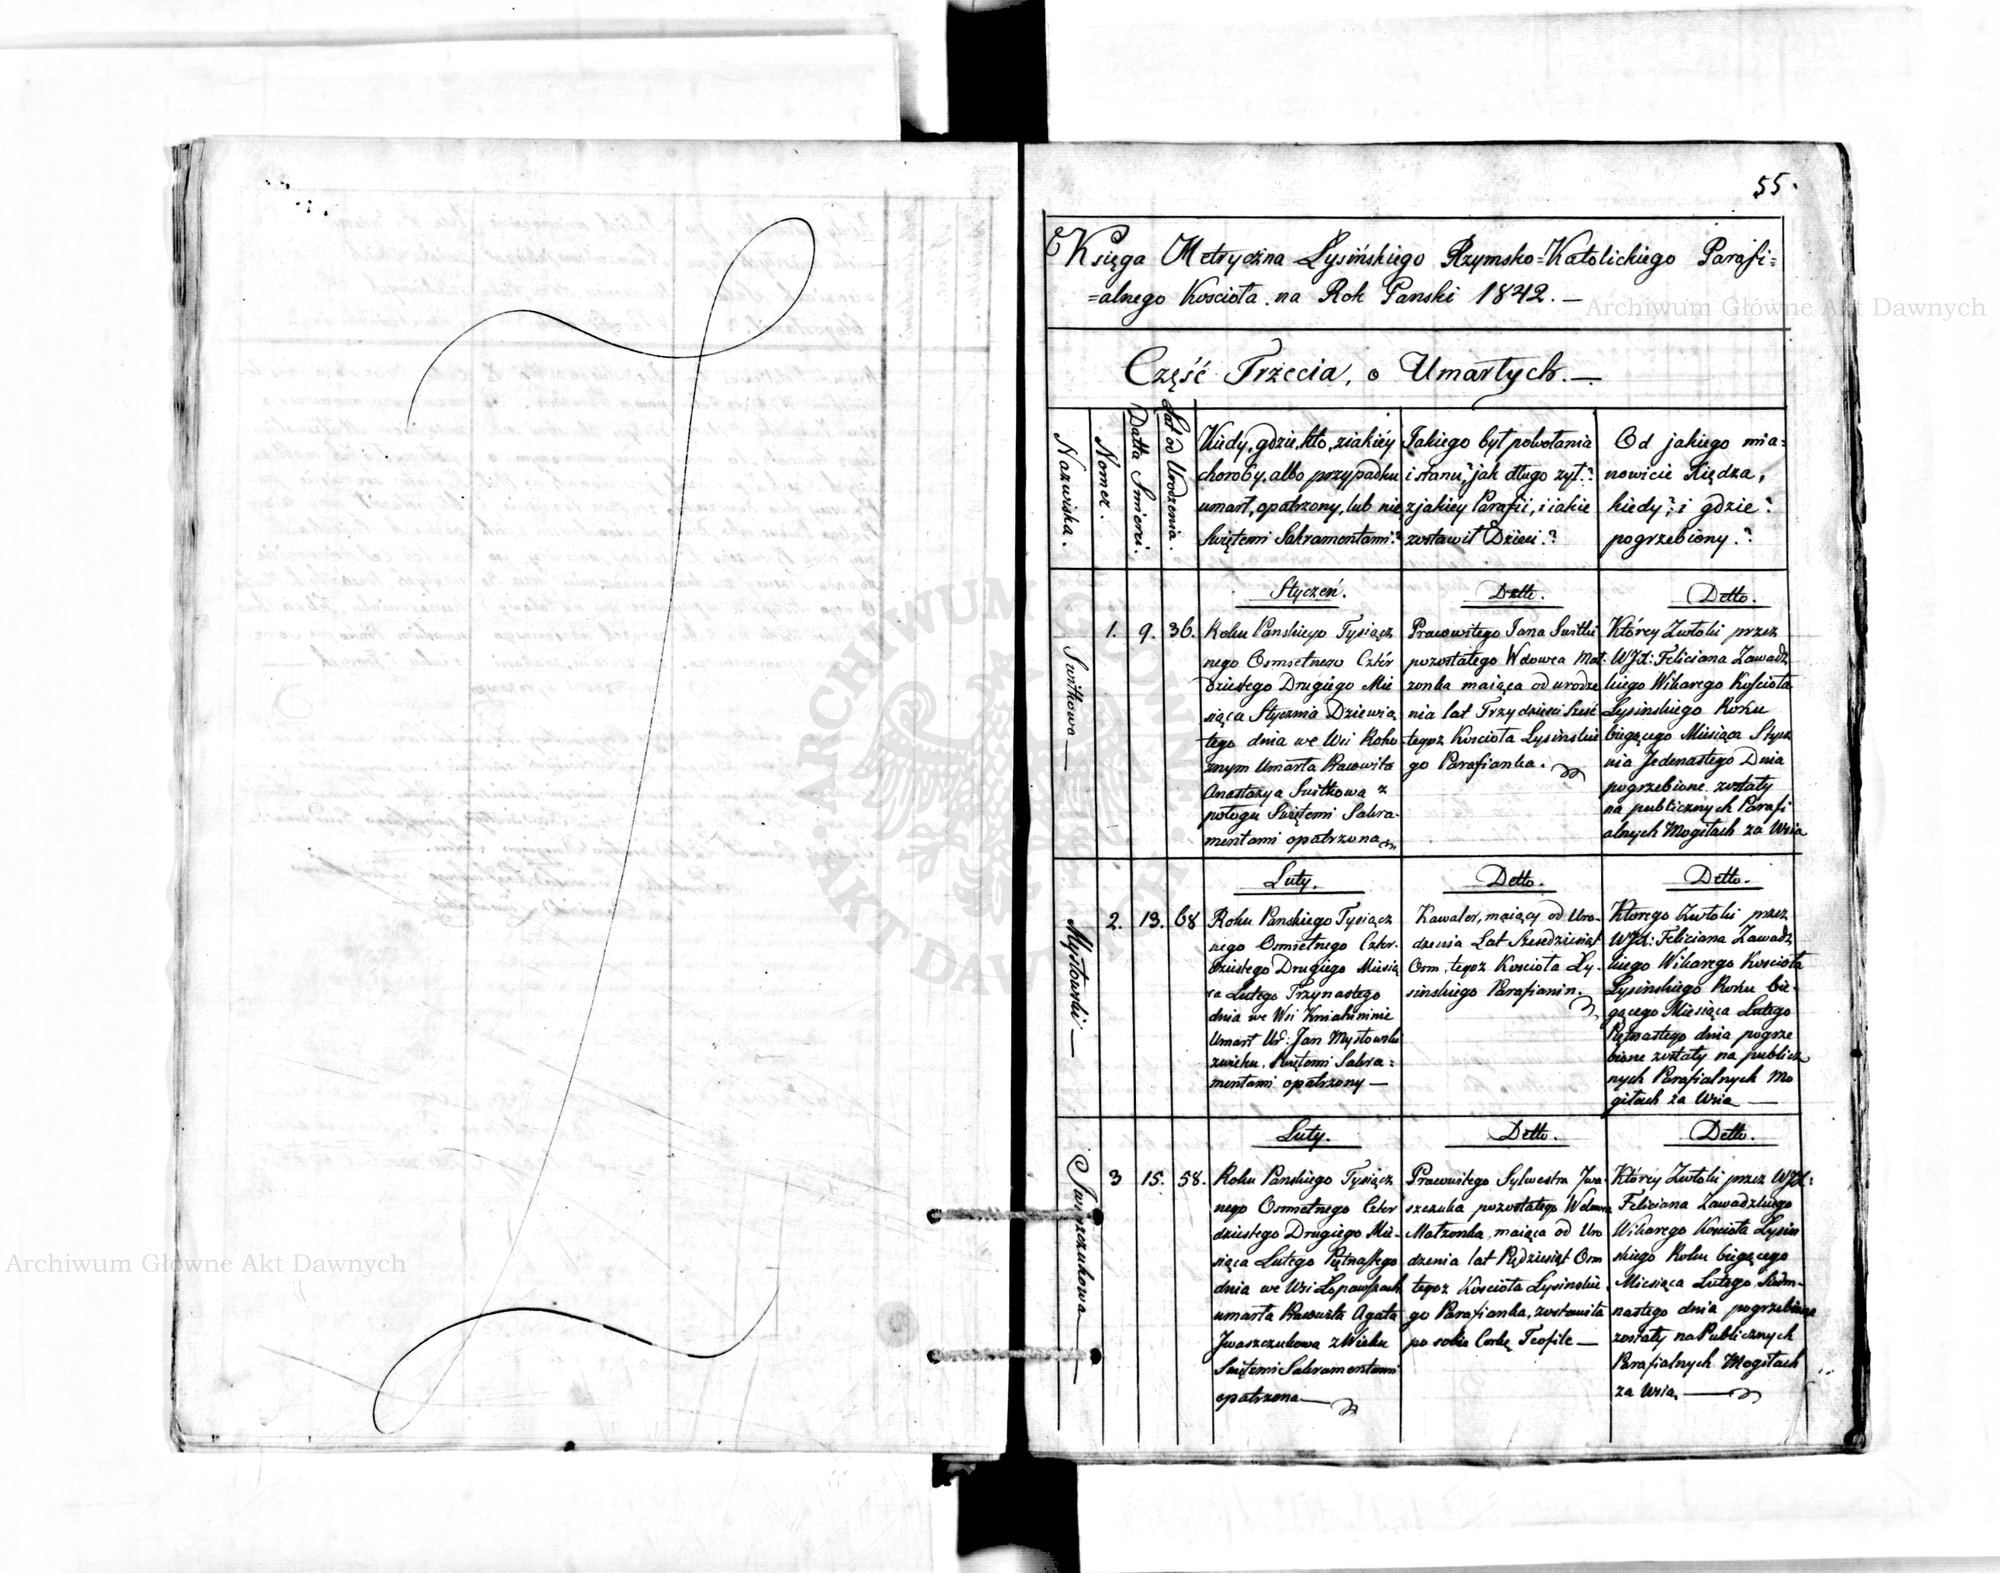 55.
Księga Metryczna Łysińskiego Rzymsko=Katolickiego Parafi=
=alnego Koscioła na Rok Panski 1842. —
Część Trzecia, o Umarłych. —
Nazwiska.
Nomer.
Datta Smierci.
Lat od Urodzenia.
Kiedy, gdzie, kto, z iakiéy
choroby, albo przypadku
umarł, opatrzony, lub nie
Swiętemi Sakramentami?
Jakiego był powołania
i stanu? jak długo zył?
z jakiéy Parafii, i iakie
zostawił Dzieci?
Od jakiego mia=
nowicie Xiędza,
kiedy? i gdzie?
pogrzebiony?
Switkowa —
1.
9.
36.
Styczeń.
Roku Panskiego Tysiącz
nego Osmsetnego Czter
dziestego Drugiego Mie
siąca Stycznia Dziewią
tego dnia we Wsi Roho
znym Umarła Pracowita
Anastazya Switkowa z
połogu Swiętemi Sakra-
mentami opatrzona
Detto.
Pracowitego Jana Switki
pozostałego Wdowca Mał-
zonka maiąca od urodze
nia lat Trzydzieści Sześć
tegoz Koscioła Łysinskie
go Parafianka.
Detto.
Któréy Zwłoki przez
WJX: Feliciana Zawadz
kiego Wikarego Kościoła
Łysinskiego Roku
biegącego Miesiąca Stycz
nia Jedenastego Dnia
pogrzebione zostały
na publicznych Parafi
alnych Mogiłach za Wsią
Mysłowski —
2.
13.
68
Luty.
Roku Panskiego Tysiącz
nego Osmsetnego Czter-
dziestego Drugiego Miesią
ca Lutego Trzynastego
dnia we Wsi Kniahininie
Umarł Ur: Jan Mysłowski
z wieku, Swiętemi Sakra=
mentami opatrzony —
Detto.
Kawaler, maiący od Uro-
dzenia Lat Szesdziesiąt
Osm, tegoz Koscioła Ły-
sinskiego Parafianin.
Detto.
Którego Zwłoki przez
WJX: Feliciana Zawadz
kiego Wikarego Koscioła
Łysinskiego Roku bie-
gącego Miesiąca Lutego
Piętnastego dnia pogrze
bione zostały na publicz
nych Parafialnych Mo
giłach za Wsią —
Iwaszczukowa —
3
15.
58.
Luty.
Roku Panskiego Tysiącz
nego Osmsetnego Czter
dziestego Drugiego Mie-
siąca Lutego Piętnastego
dnia we Wsi Łopawszach
umarła Pracowita Agata
Jwaszczukowa z Wieku
Swiętemi Sakramentami
opatrzona —
Detto.
Pracowitego Sylwestra Jwa-
szczuka pozostałego Wdowca
Małzonka, maiąca od Uro
dzenia lat Pędziesiąt Osm
tegoz Koscioła Łysinskie
go Parafianka, zostawiła
po sobie Corkę Teofile —
Detto.
Któréy Zwłoki przez WJX:
Feliciana Zawadzkiego
Wikarego Koscioła Łysin
skiego Roku biegącego
Miesiąca Lutego Siedm-
nastego dnia pogrzebione
zostały na Publicznych
Parafialnych Mogiłach
za Wsią —
Archiwum Główne Akt Dawnych
Archiwum Główne Akt Dawnych
ARCHIWUM GŁÓWNE · AKT DAWNYCH ·